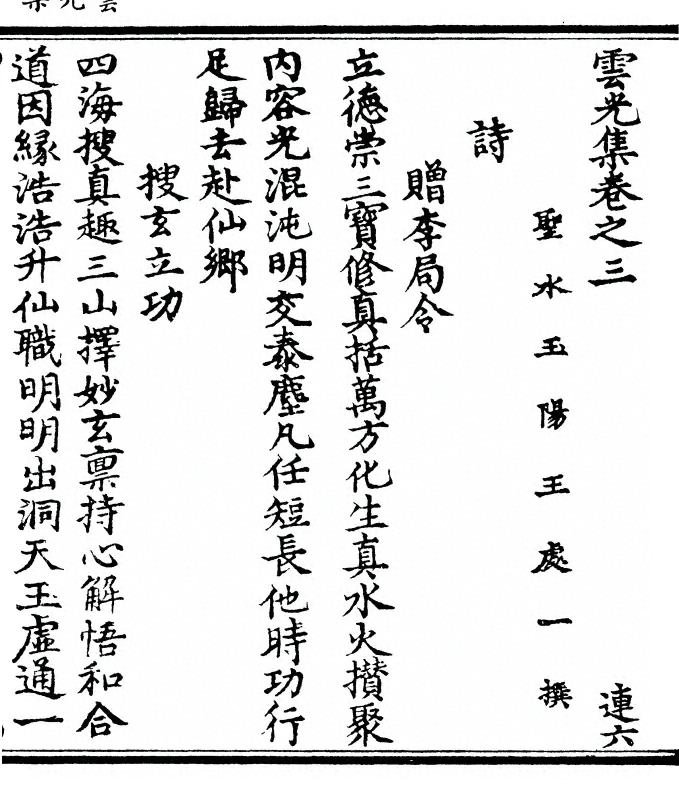 雲光集卷之三 連六
聖水玉陽王處一撰
詩
贈李局令
立德崇三寶修真括萬方化生真水火攅聚
内容光混沌明交泰塵凡任短長他時功行
足歸去赴仙鄉
搜玄立功
四海搜真趣三山擇妙玄禀持心解悟和合
道因緣浩浩升仙職明明出洞天玉虛通一